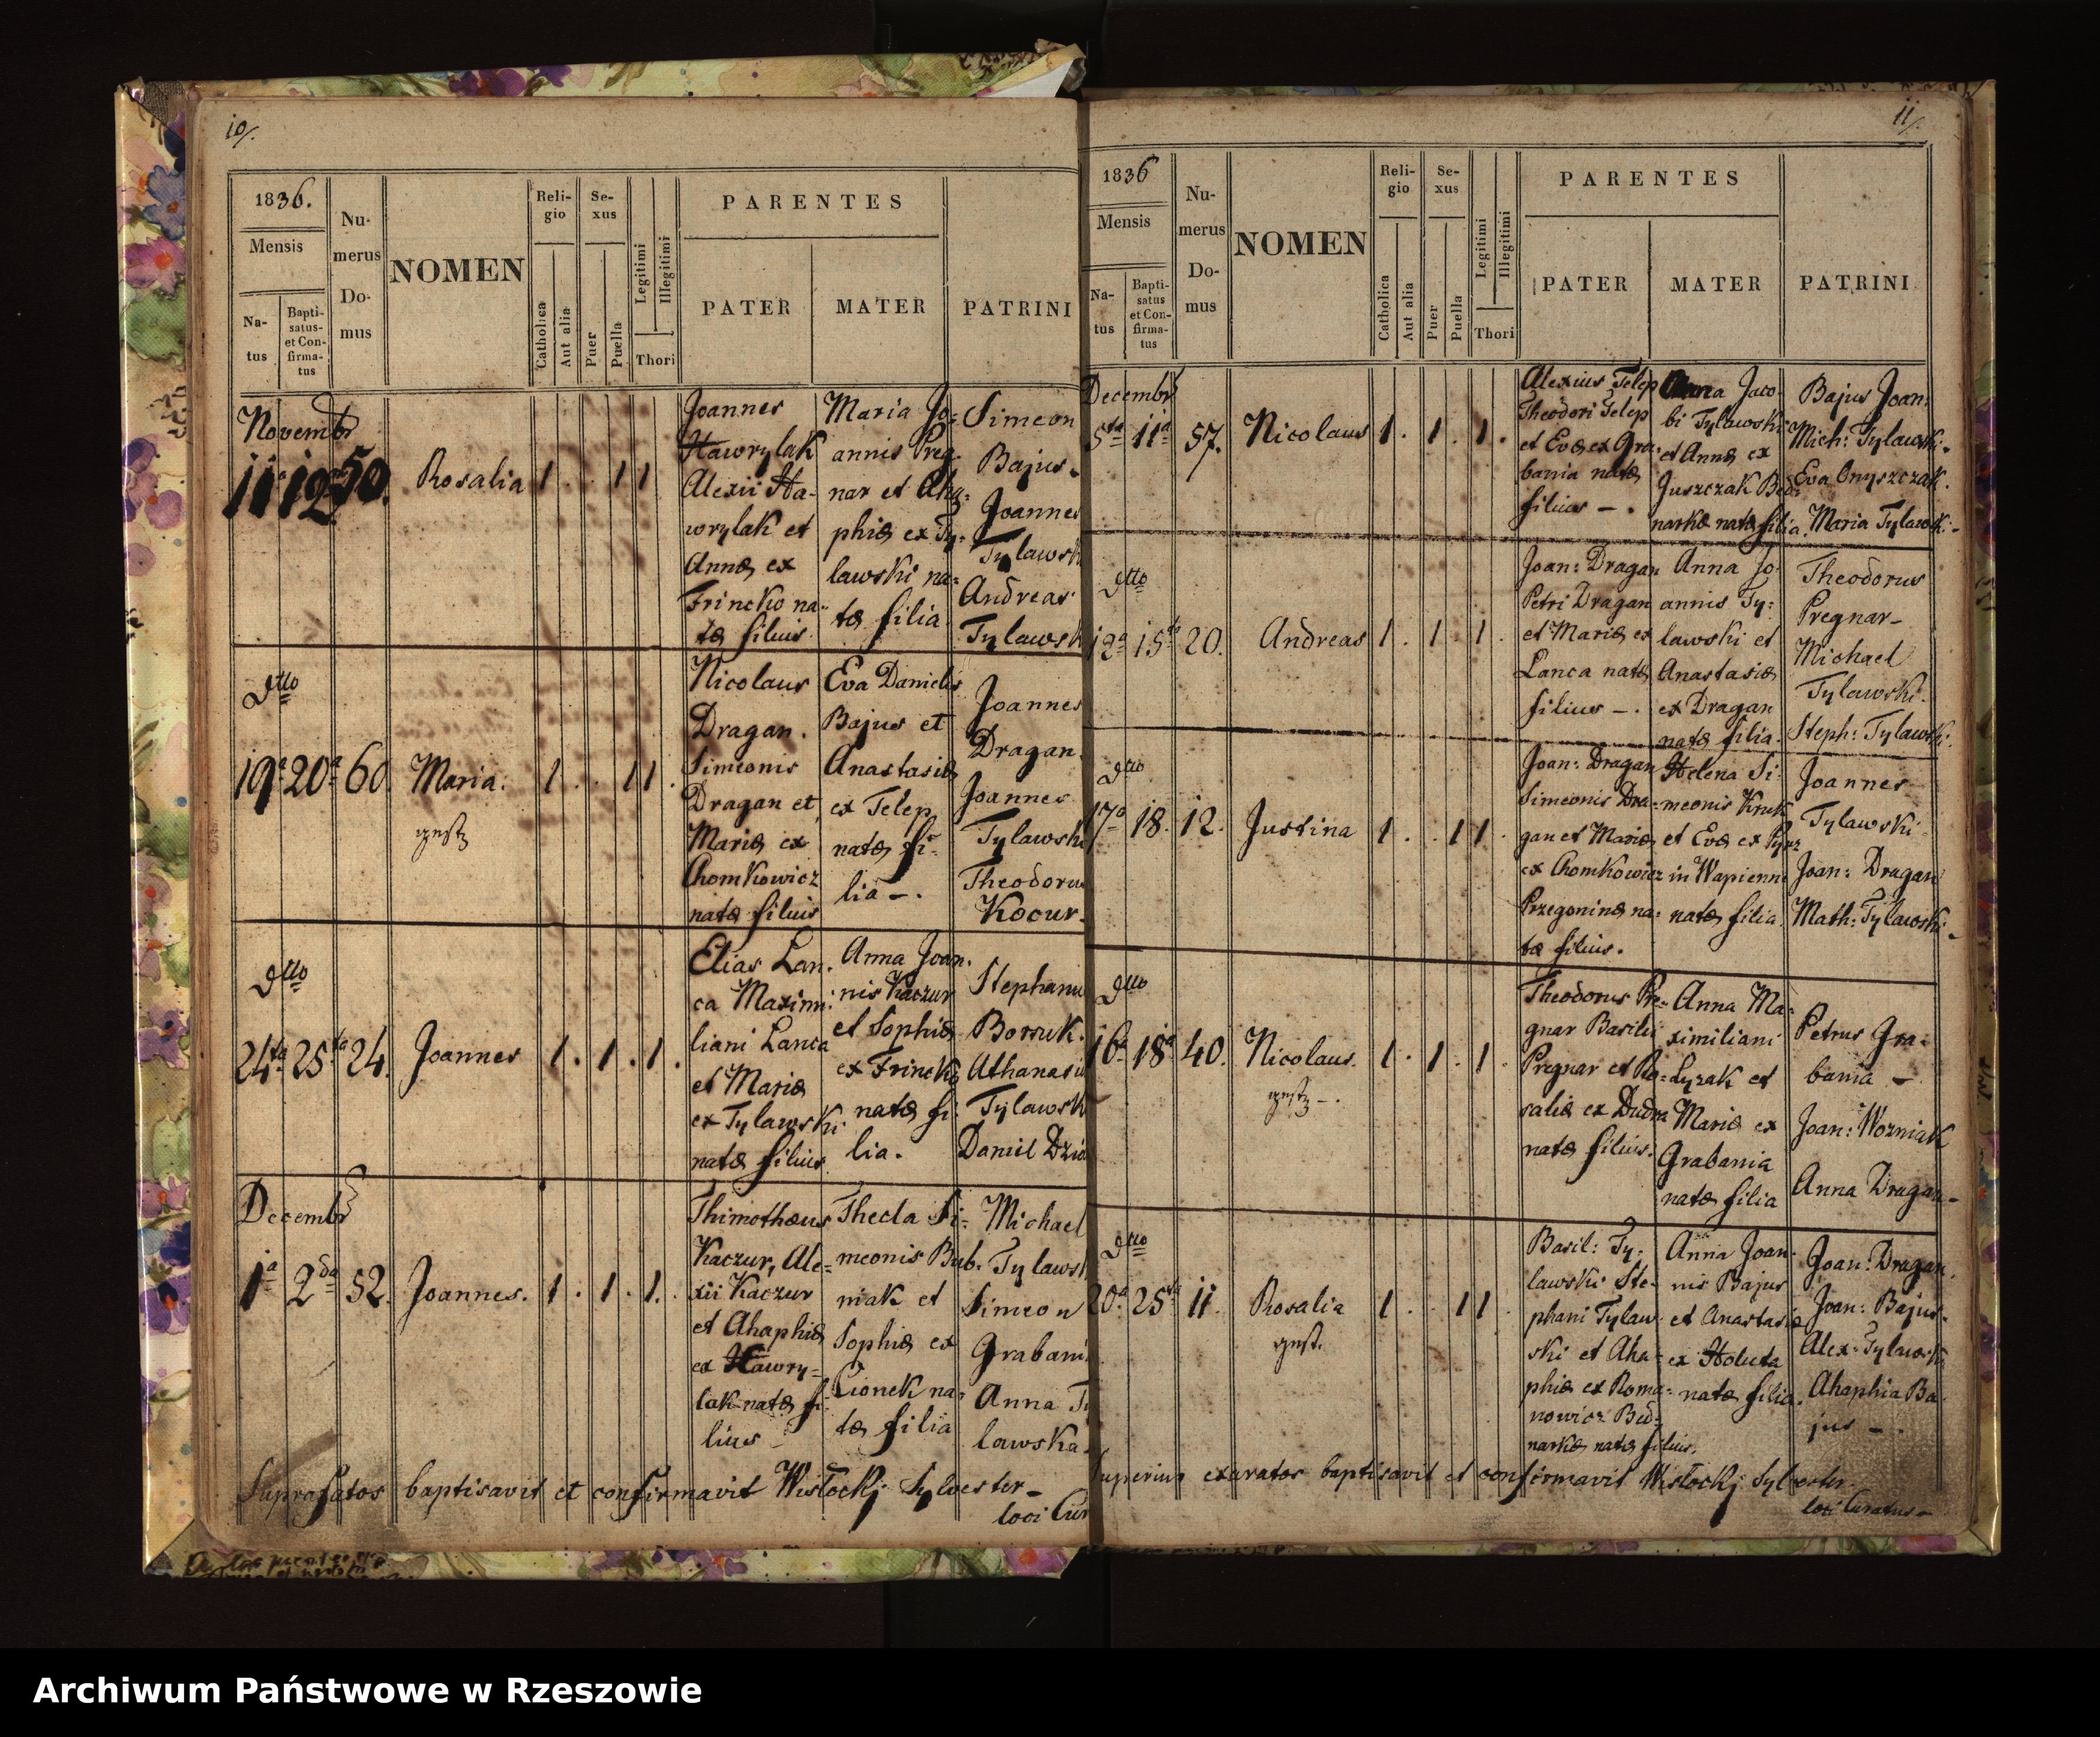 10/.
1836.
Mensis
Na-
tus
Bapti-
satus-
et Con-
firma-
tus
Nu-
merus
Do-
mus
NOMEN
Reli-
gio
Catholica
Aut alia
Se-
xus
Puer
Puella
Legitimi
Illegitimi
Thori
PARENTES
PATER
MATER
PATRINI
Novembr
11 12 50. Rosalia 1 . . 1 1
Joannes
Hawrylak
Alexii Ha-
wrylak et
Annæ ex
Frincko na-
tæ filius
Maria Jo-
annis Preg-
nar et Aha-
phiæ ex Ty-
lawski na-
tæ filia
Simeon
Bajus.
Joannes
Tylawsk
Andreas
Tylawsk
dtto
19a 20a 60 Maria. 1 . . 1 1 .
gestz
Nicolaus
Dragan.
Simeonis
Dragan et
Mariæ ex
Chomkowicz
natæ filius
Eva Danielis
Bajus et
Anastasiæ
ex Telep
natæ fi-
lia -.
Joannes
Dragan.
Joannes
Tylawsk
Theodoru
Kocur.
dtto
24ta 25ta 24. Joannes 1. . 1. . 1. .
Elias Lan.
ca Maximi:
liani Lanca
et Mariæ
ex Tylawski
natæ filius
Anna Joan.
nis Kaczur
et Sophiæ
ex Frincko
natæ fi:
lia.
Stephanu
Borsuk.
Athanasi
Tylawsk
Daniel Dziu
Decembr
1a 2da 52. Joannes. 1 . 1 . 1.
Thimothæus
Kaczur, Ale-
xii Kaczur
et Ahaphiæ
ex Hawry-
lak natæ fi-
lius
Thecla Si-
meonis Bub.
niak et
Sophiæ ex
Cionek na-
tæ filia
Michael
Tylawsk
Simeon
Grabani
Anna Ty
lawska
Suprafatos baptisavit et confirmavit Wisłockj Sylvester -
loci Cur
11/.
1836
Mensis
Na-
tus
Bapti-
satus
et Con-
firma-
tus
Nu-
merus
Do-
mus
NOMEN
Reli-
gio
Catholica
Aut alia
Se-
xus
Puer
Puella
Legitimi
Illegitimi
Thori
PARENTES
PATER
MATER
PATRINI
Decembr
5ta 11a 57. Nicolaus 1 . 1 . 1 .
Alexius Telep
Theodori Telep
et Evæ ex Gra-
bania natæ
filius - .
Anna Jaco-
bi Tylawski
et Annæ ex
Juszczak Bed-
narkæ natæ filia.
Bajus Joan:
Mich: Tylawski-
Eva Onyszczak.
Maria Tylawski-
dtto
12a 15ta 20. Andreas 1 . 1 . 1 .
Joan: Dragan
Petri Dragan
et Mariæ ex
Lanca natæ
filius - .
Anna Jo-
annis Ty-
lawski et
Anastasiæ
ex Dragan
natæ filia.
Theodorus
Pregnar-
Michael
Tylawski.
Steph: Tylawski.
dtto
17a 18. 12. Justina 1 . . 1 1 .
Joan: Dragan
Simeonis Dra-
gan et Mariæ
ex Chomkowicz
Przegoninæ na-
tæ filius.
Helena Si-
meonis Kruk
et Evæ ex Pyrz
in Wapienne
natæ filia.
Joannes
Tylawski-
Joan: Dragan
Math: Tylawski.
dtto
16a 18a 40. Nicolaus. 1 . 1 . 1 .
gestz -.
Theodorus Pre-
gnar Basilii
Pregnar et Ro-
saliæ ex Dudra
natæ filius.
Anna Ma-
ximiliani
Lyzak et
Mariæ ex
Grabania
natæ filia
Petrus Gra-
bania -
Joan: Wozniak
Anna Dragan-
dtto
20a 25ta 11. Rosalia 1 . . 1 1 .
gest.
Basil: Ty-
lawski Ste-
phani Tylaw-
ski et Aha-
phiæ ex Roma-
nowicz Bed-
narkæ natæ filius.
Anna Joan-
nis Bajus
et Anastasiæ
ex Holuta
natæ filia.
Joan: Dragan.
Joan: Bajus.
Alex: Tylawski
Ahaphia Ba-
jus - .
Superius exaratos baptisavit et confirmavit Wisłockj Sylvester
loci Curatus -
Archiwum Państwowe w Rzeszowie